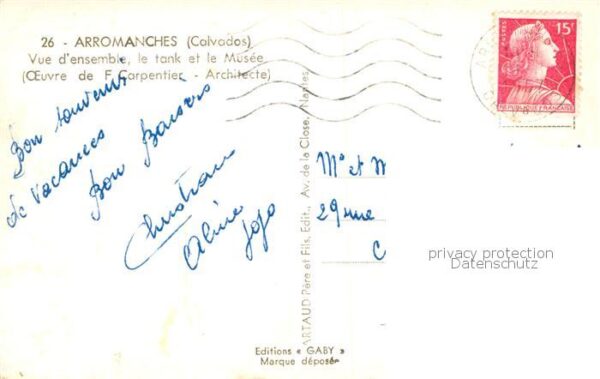 26 - ARROMANCHES (Calvados)
Vue d'ensemble, le tank et le Musée
(Œuvre de F. Carpentier - Architecte)
Bon souvenir
de vacances
Bon Baisers
Christian
Aline
Jojo
ARTAUD Père et Fils, Edit., Av. de la Close, Nantes
Editions « GABY »
Marque déposée
POSTES
15F
REPUBLIQUE FRANÇAISE
AR
Mr et M
29 rue
C
privacy protection
Datenschutz